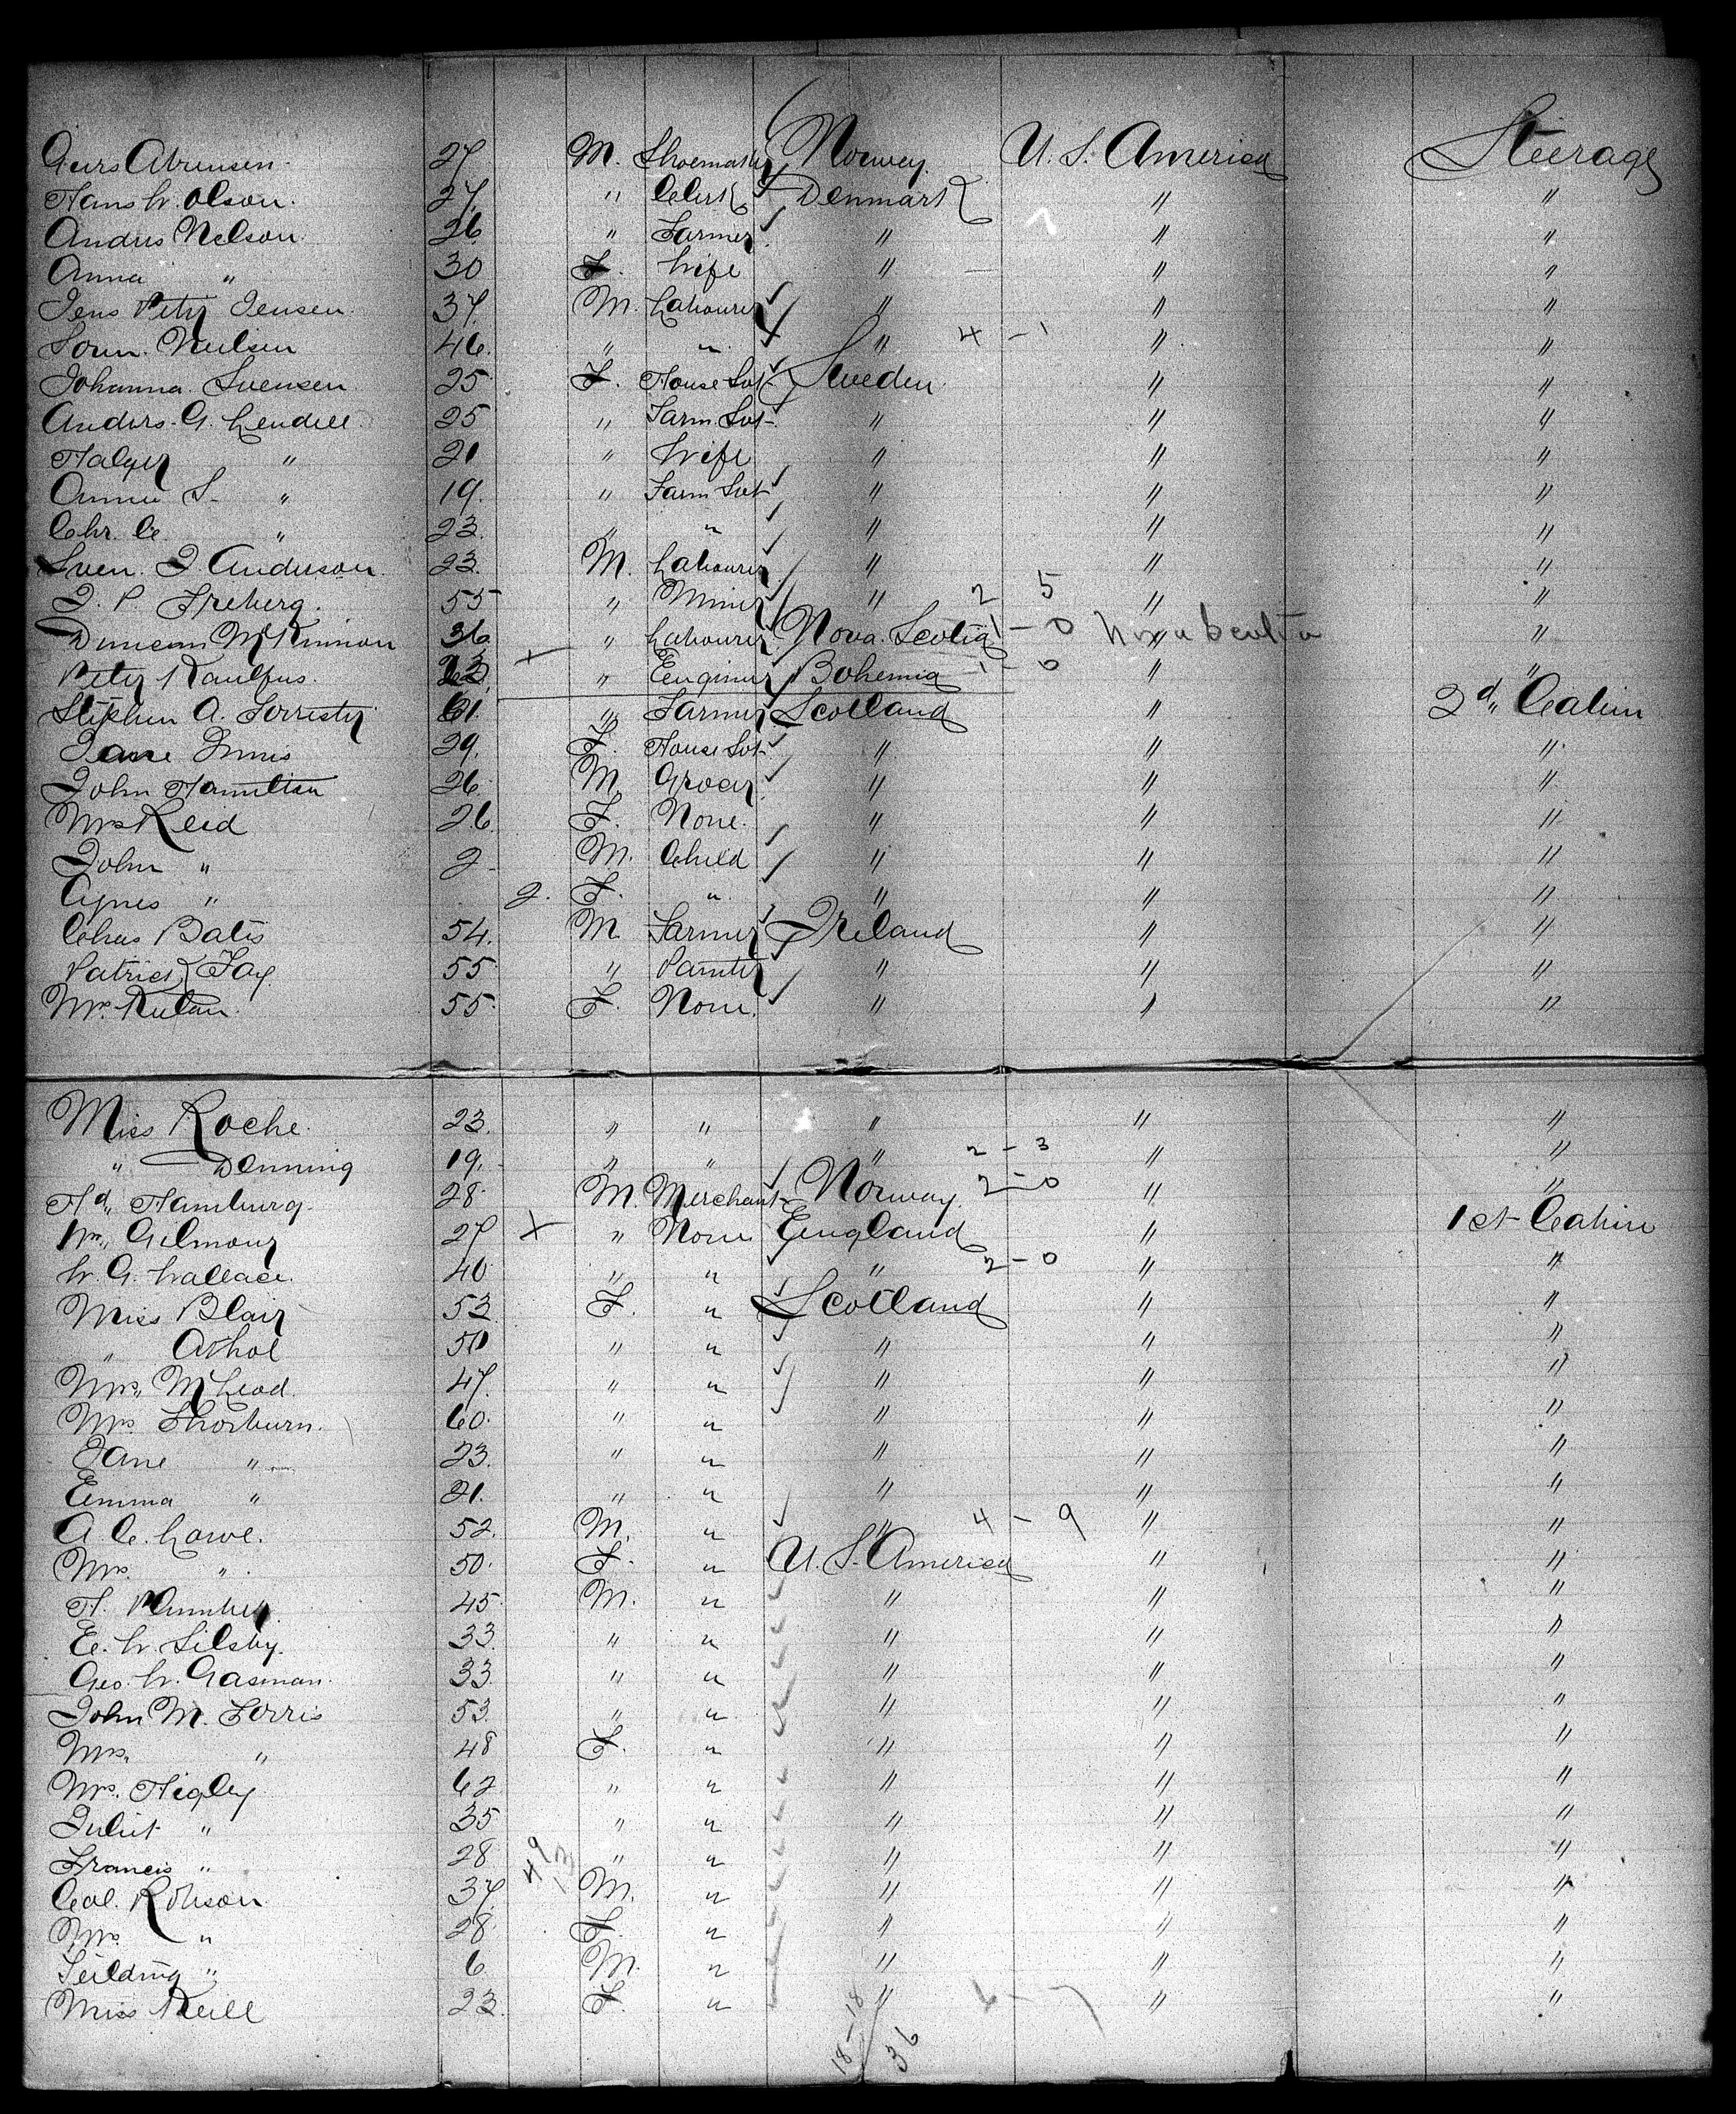 27 M. Shoemaker Norway. U. S. America Steerage
Hans W. Olson. 27. " Clerk Denmark " "
Andus Nelson. 26 " Farmer " " "
Anna " 30 F. Wife " " "
Jens Peter Jensen. 37. M. Labourer " " "
Sorn. Neilsen 46. " " " 4 - 1 " "
Johanna Svensen 25 F. House Svt Sweden. " "
Anders. G. Lendell. 25 " Farm. Svt- " " "
" 21 " Wife " " "
Annie S. " 19. " Farm Svt " " "
Chr. C. " 23. " " " " "
Sven. J Anderson. 23. M. Labourer " " "
J. P. Freberg. 55 " Miner " 2 5 " "
Duncan McKinnon 36. " Labourer. Nova. Scotia 1 - 0 Nova Scotia " "
Peter Kaulfus. + " Engineer Bohemia 1 - 0 " "
Stephen A. Forrester 61. " Farmer Scotland " 2d,, Cabin
Jane Innis 29. F. House Svt- " " "
John Hamilton 26. M. Grocer. " " "
Mrs Reid 26. F. None. " " "
John " 2 M. Child " " "
Agnes " 2. F. " " " "
Chas Bates 54. M Farmer Ireland " "
Patrick Fay. 55 " Painter " " "
55. F. None. " " "
Miss Roche. 23. " " " " "
" Denning 19. " " " 2 - 3 " "
Hd,, Hamburg. 28. M. Merchant- Norway. 2 - 0 " "
Wm,, Gilmour 27 + " None England " 1st Cabin
W. G. Wallace. 40 " " " 2 - 0 " "
Miss Blair 53 F. " Scotland " "
" Athol 50 " " " " "
Mrs,, McLeod. 47. " " " " "
Mrs. Thorburn. 60. " " " " "
Jane " 23. " " " " "
Emma " 21. " " " " "
A. C. Lowe. 52. M. " " 4 - 9 " "
Mrs. " 50. F. " U. S. America " "
H. 45 M. " " " "
E. W. Silsby. 33. " " " " "
Geo. W. Gasman. 33. " " " " "
John M. Forris 53. " " " " "
Mrs. " 48 F. " " " "
Mrs. Higley 62 " " " " "
Juliet " 35 " " " " "
Francis " 28 " " " " "
Col. Robson. 37. 49 13 M. " " " "
Mrs. " 28. F. " " " "
Feilding " 6 M. " " " "
Miss Neill 23. F. " " 6 - 7 " "
18 - 18
36